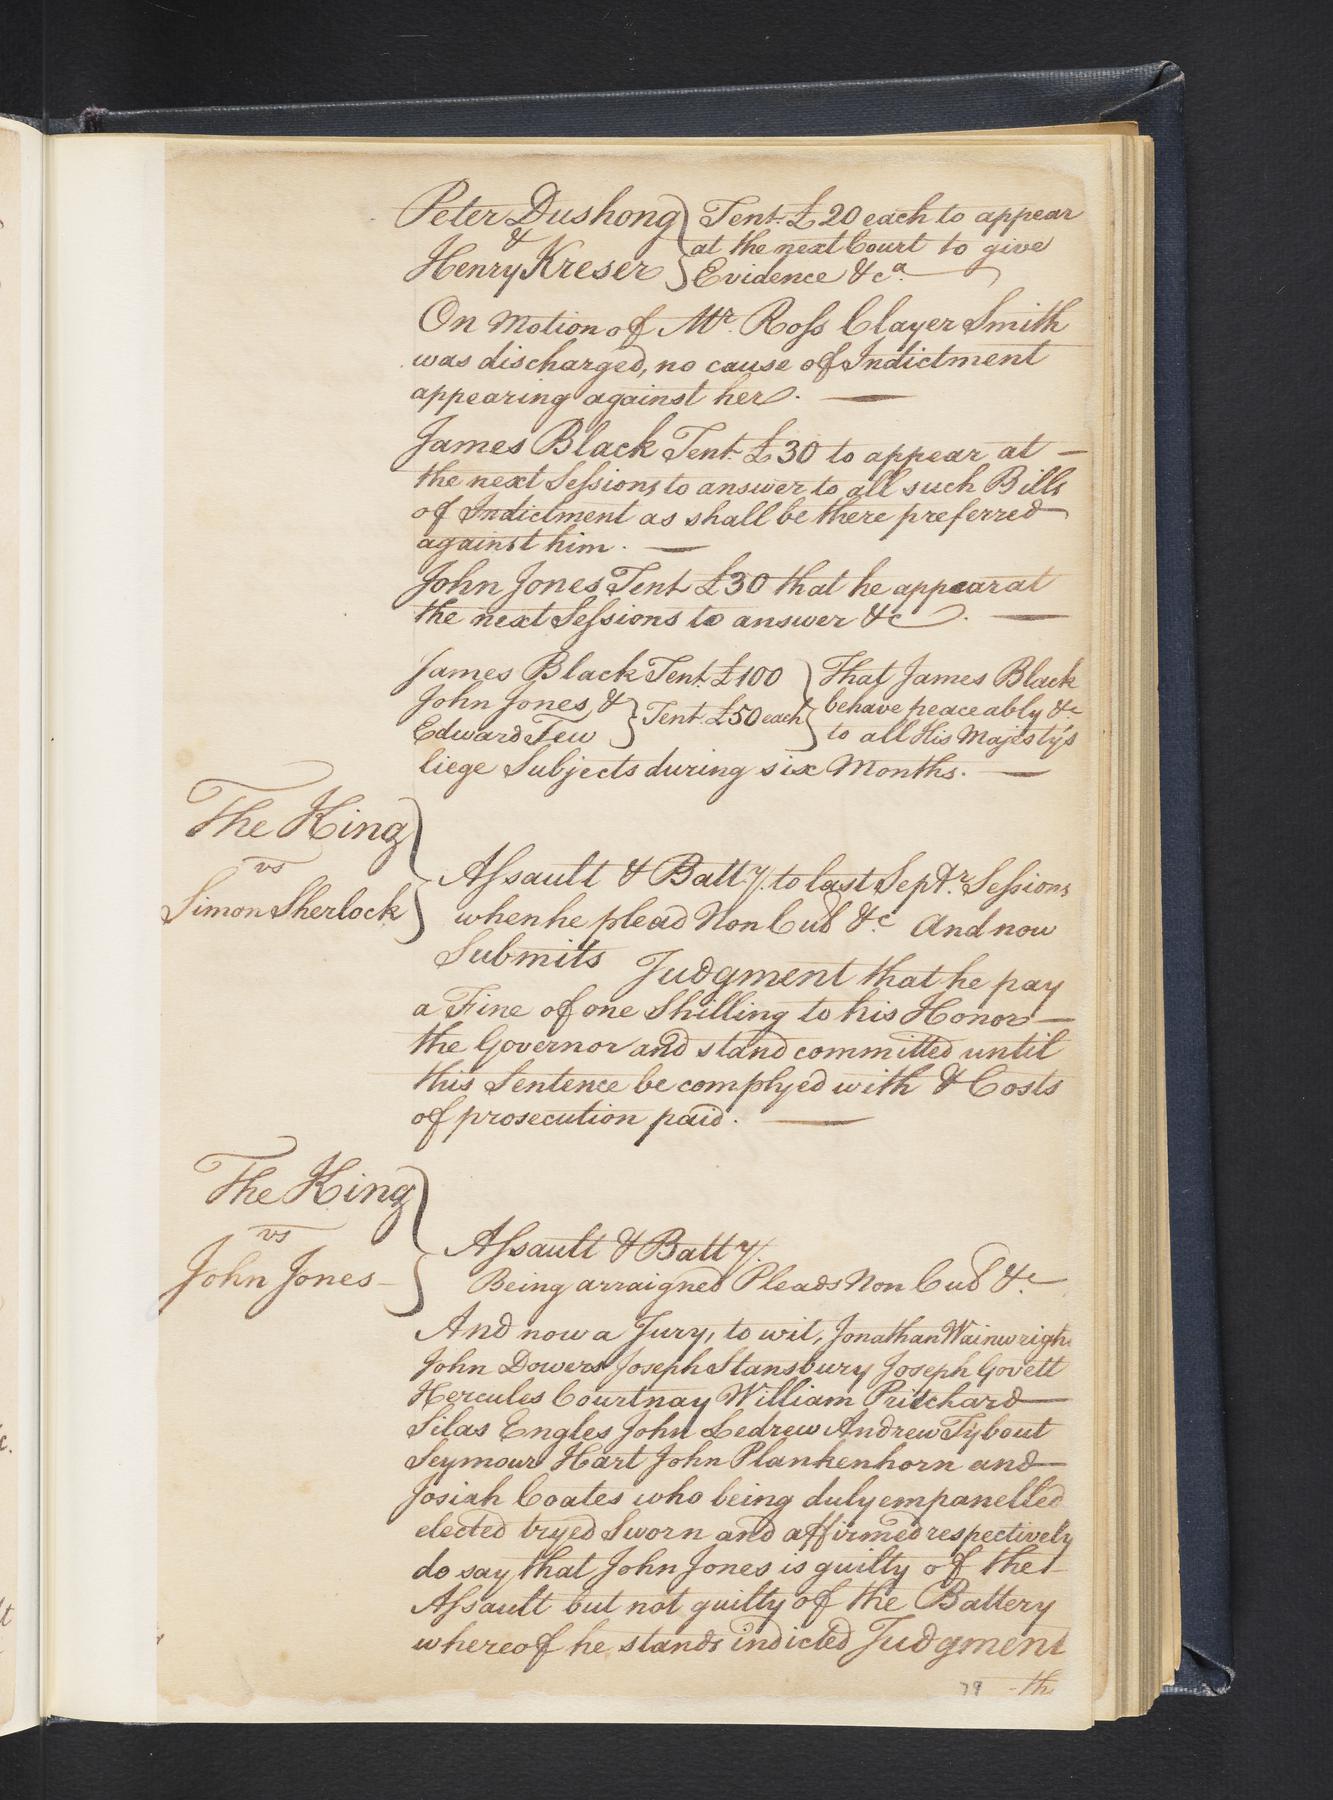 Peter Dushong } Tent. £20 each to appear
& } at the next Court to give
Henry Kreser } Evidence &cª.
On Motion of Mr. Ross Clayer Smith
was discharged, no cause of Indictment
appearing against her. —
James Black Tent. £30 to appear at —
the next Sessions to answer to all such Bills
of Indictment as shall be there preferred
against him. —
John Jones Tent £30 that he appear at
the next Sessions to answer &c. —
James Black Tent. £100 } That James Black
John Jones & } Tent. £50 each } behave peaceably &c
Edward Few } to all His Majesty's
liege Subjects during six Months. —
The King
vs
Simon Sherlock }
Assault & Batty. to last Septr. Sessions
when he plead Non Cud &c. And now
Submits Judgment that he pay
a Fine of one Shilling to his Honor —
the Governor and stand committed until
this Sentence be complyed with & Costs
of prosecution paid. —
The King
vs
John Jones }
Assault & Batty.
Being arraigned Pleads Non Cud &c.
And now a Jury, to wit, Jonathan Wainwright
John Dowers Joseph Stansbury Joseph Govett
Hercules Courtnay William Pritchard
Silas Engles John Ledrew Andrew Tybout
Seymour Hart John Plankenhorn and
Josiah Coates who being duly empanelled
elected tryed Sworn and affirmed respectively
do say that John Jones is guilty of the
Assault but not guilty of the Battery
whereof he stands indicted Judgment
79 th